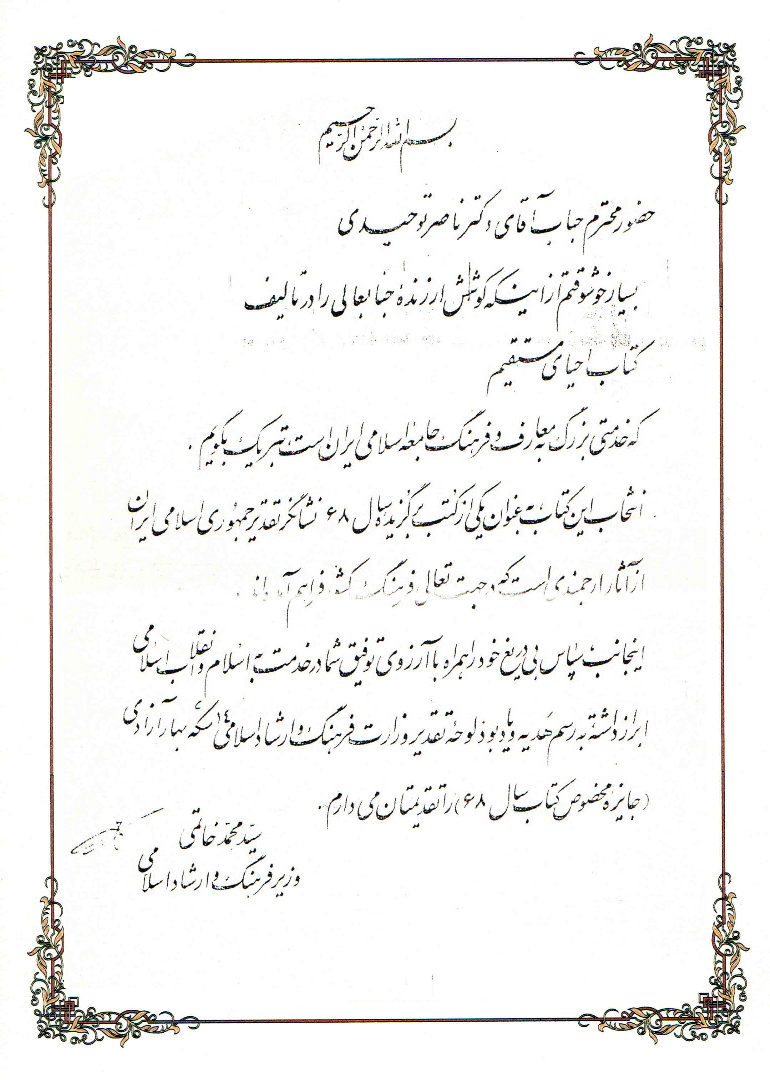 بسم الله الرحمن الرحیم
حضور محترم جناب آقای دکتر ناصر توحیدی
بسیار خوشوقتم از اینکه کوشش ارزندهٔ جنابعالی را در تالیف
کتاب احیای مستقیم
که خدمتی بزرگ به معارف و فرهنگ جامعه اسلامی ایران است تبریک بگویم.
انتخاب این کتاب به عنوان یکی از کتب برگزیده سال ۶۸ نشانگر تقدیر جمهوری اسلامی ایران
از آثار ارجمندی است که در جهت تعالی فرهنگ کشور فراهم آمده‌اند.
اینجانب سپاس بی دریغ خود را همراه با آرزوی توفیق شما در خدمت به اسلام و انقلاب اسلامی
ابراز داشته به رسم هدیه و یادبود لوحهٔ تقدیر وزارت فرهنگ و ارشاد اسلامی و ۱۴ سکه بهار آزادی
(جایزه مخصوص کتاب سال ۶۸) را تقدیمتان می دارم.
سید محمد خاتمی
وزیر فرهنگ و ارشاد اسلامی